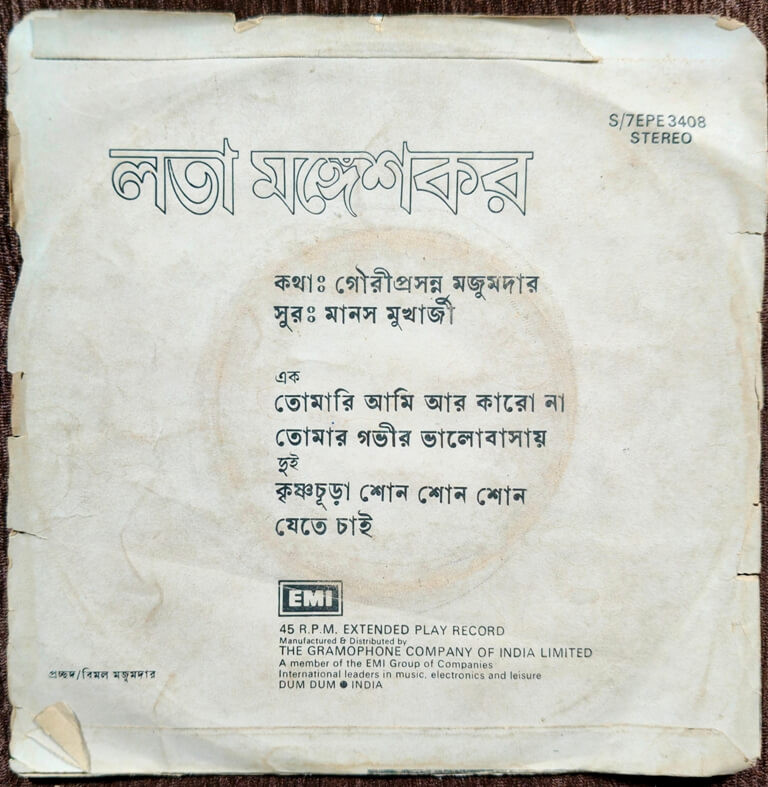 S/7EPE 3408
STEREO
লতা মঙ্গেশকর
কথাঃ গৌরীপ্রসন্ন মজুমদার
সুরঃ মানস মুখার্জী
এক
তোমারি আমি আর কারো না
তোমার গভীর ভালোবাসায়
দুই
কৃষ্ণচূড়া শোন শোন শোন
যেতে চাই
EMI
45 R.P.M. EXTENDED PLAY RECORD
Manufactured & Distributed by
THE GRAMOPHONE COMPANY OF INDIA LIMITED
A member of the EMI Group of Companies
International leaders in music, electronics and leisure
DUM DUM ● INDIA
প্রচ্ছদ/বিমল মজুমদার